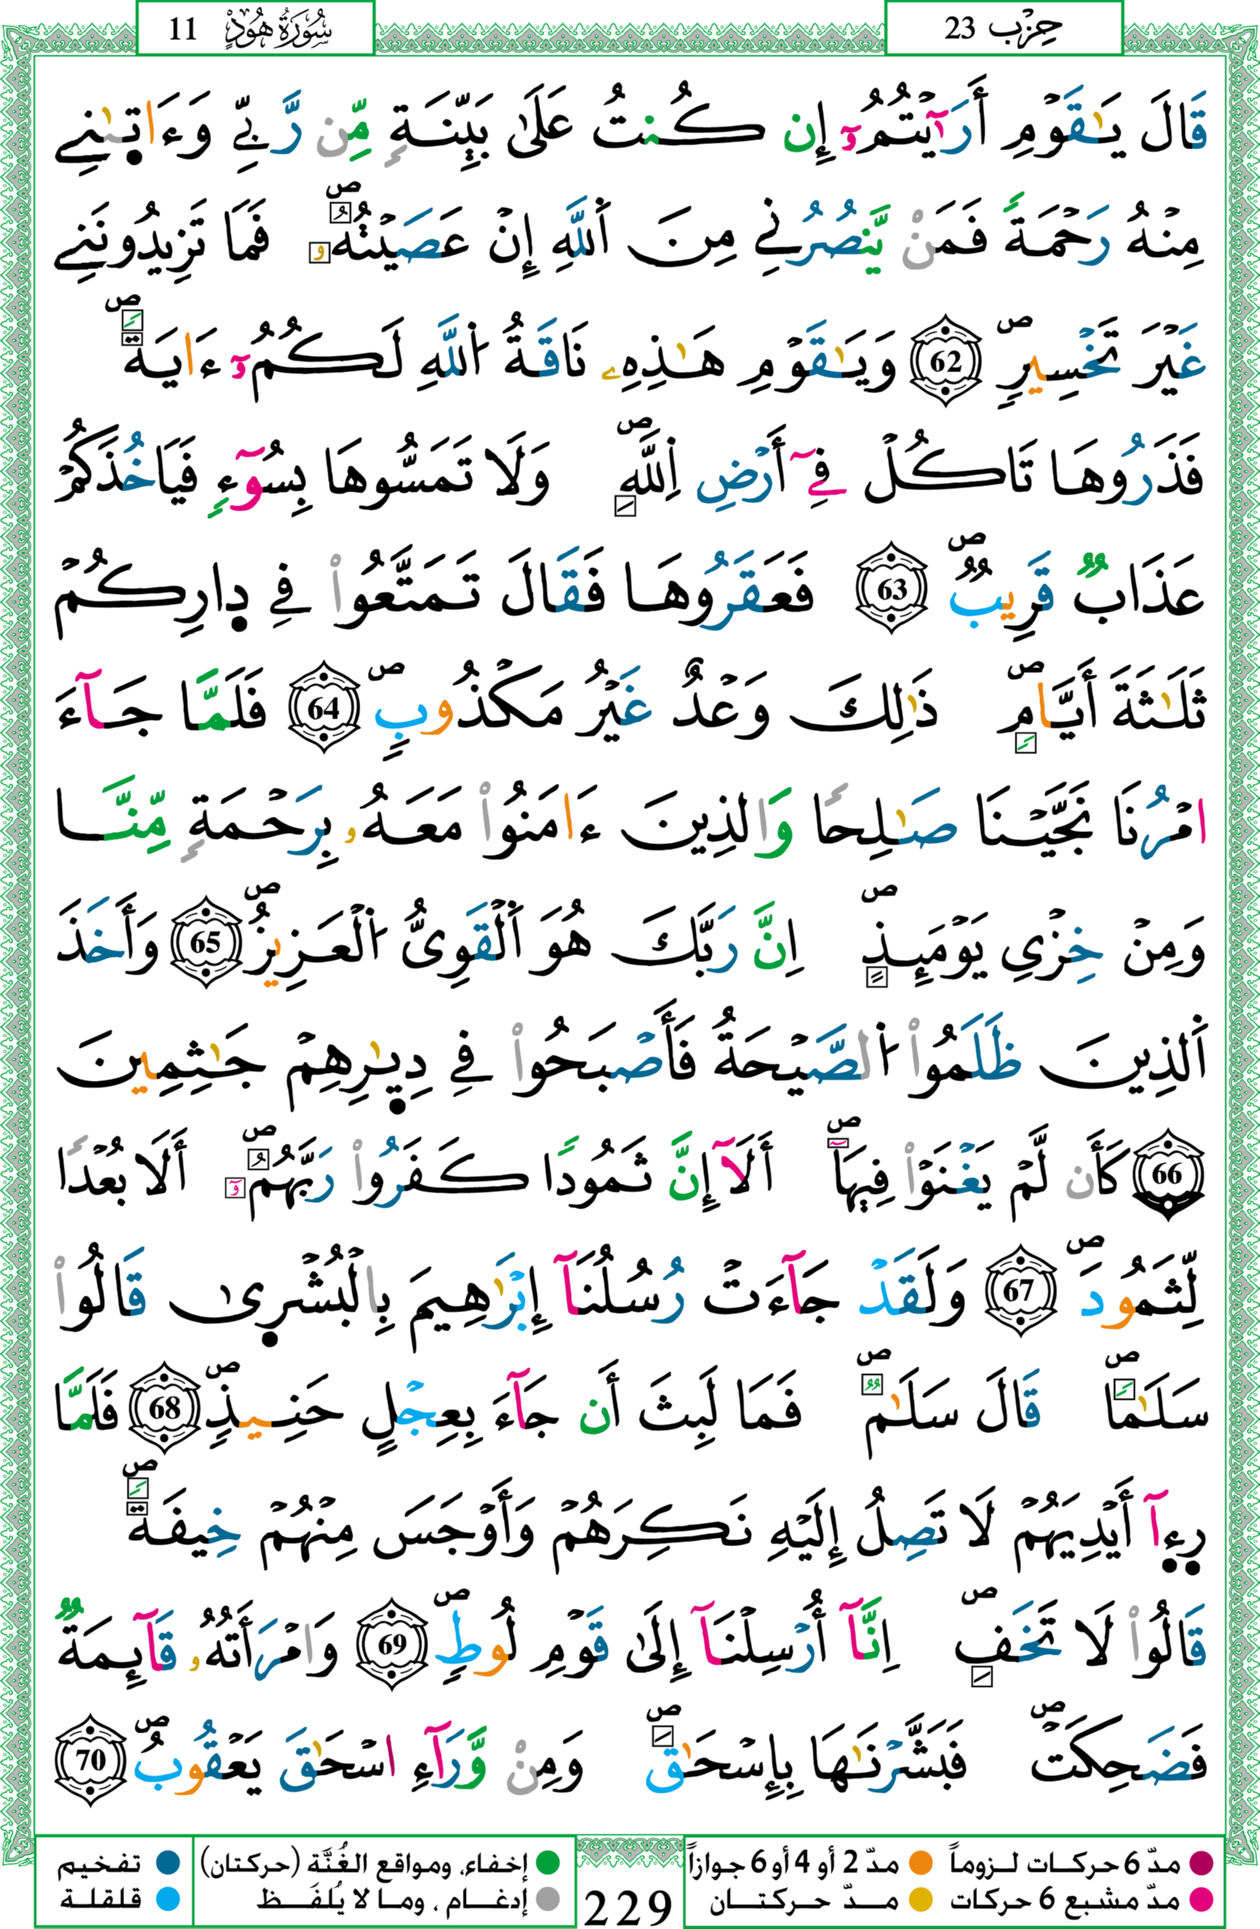 حِزْب 23
سُورَةُ هُودٍ 11
قَالَ يَٰقَوْمِ أَرَٰٓيْتُمُۥٓ إِن كُنتُ عَلَىٰ بَيِّنَةٍ مِّن رَّبِّي وَءَاتٜىٰنِے
مِنْهُ رَحْمَةً فَمَنْ يَّنصُرُنِے مِنَ اَ۬للَّهِ إِنْ عَصَيْتُهُۥ ص فَمَا تَزِيدُونَنِے
غَيْرَ تَخْسِيرٍ ص 62 وَيَٰقَوْمِ هَٰذِهِۦ نَاقَةُ اُ۬للَّهِ لَكُمُۥٓ ءَايَةً ص
فَذَرُوهَا تَاكُلْ فِےٓ أَرْضِ اِ۬للَّهِ ص وَلَا تَمَسُّوهَا بِسُوٓءٍ فَيَاخُذَكُمْ
عَذَابٌ قَرِيبٌ ص 63 فَعَقَرُوهَا فَقَالَ تَمَتَّعُواْ فِے دٜارِكُمْ
ثَلَٰثَةَ أَيَّامٍ ص ذَٰلِكَ وَعْدٌ غَيْرُ مَكْذُوبٍ ص 64 فَلَمَّا جَآءَ
امْرُنَا نَجَّيْنَا صَٰلِحًا وَالذِينَ ءَامَنُواْ مَعَهُۥ بِرَحْمَةٍ مِّنَّا
وَمِنْ خِزْيِ يَوْمَئِذٍ ص اِنَّ رَبَّكَ هُوَ اَ۬لْقَوِيُّ اُ۬لْعَزِيزُ ص 65 وَأَخَذَ
اَ۬لذِينَ ظَلَمُواْ اُ۬لصَّيْحَةُ فَأَصْبَحُواْ فِے دِيٰٜرِهِمْ جَٰثِمِينَ
66 كَأَن لَّمْ يَغْنَوْاْ فِيهَآ ص أَلَآ إِنَّ ثَمُودًا كَفَرُواْ رَبَّهُمُۥٓ ص أَلَا بُعْدًا
لِّثَمُودَ ص 67 وَلَقَدْ جَآءَتْ رُسُلُنَآ إِبْرَٰهِيمَ بِالْبُشْرٜىٰ قَالُواْ
سَلَٰمًا ص قَالَ سَلَٰمٌ ص فَمَا لَبِثَ أَن جَآءَ بِعِجْلٍ حَنِيذٍ ص 68 فَلَمَّا
رٜءٜآ أَيْدِيَهُمْ لَا تَصِلُ إِلَيْهِ نَكِرَهُمْ وَأَوْجَسَ مِنْهُمْ خِيفَةً ص
قَالُواْ لَا تَخَفِ ص اِنَّآ أُرْسِلْنَآ إِلَىٰ قَوْمِ لُوطٍ ص 69 وَامْرَأَتُهُۥ قَآئِمَةٌ
فَضَحِكَتْ ص فَبَشَّرْنَٰهَا بِإِسْحَٰقَ ص وَمِنْ وَّرَآءِ اسْحَٰقَ يَعْقُوبُ ص 70
مدّ 6 حركات لـزوماً مدّ 2 أو 4 أو 6 جوازاً
إخفاء، ومواقع الغُنَّة (حركتان) تفخيم
مدّ مشبع 6 حركات مــدّ حـركتــان
229
إدغـام ، ومـا لا يُلفَـظ قلقلـة